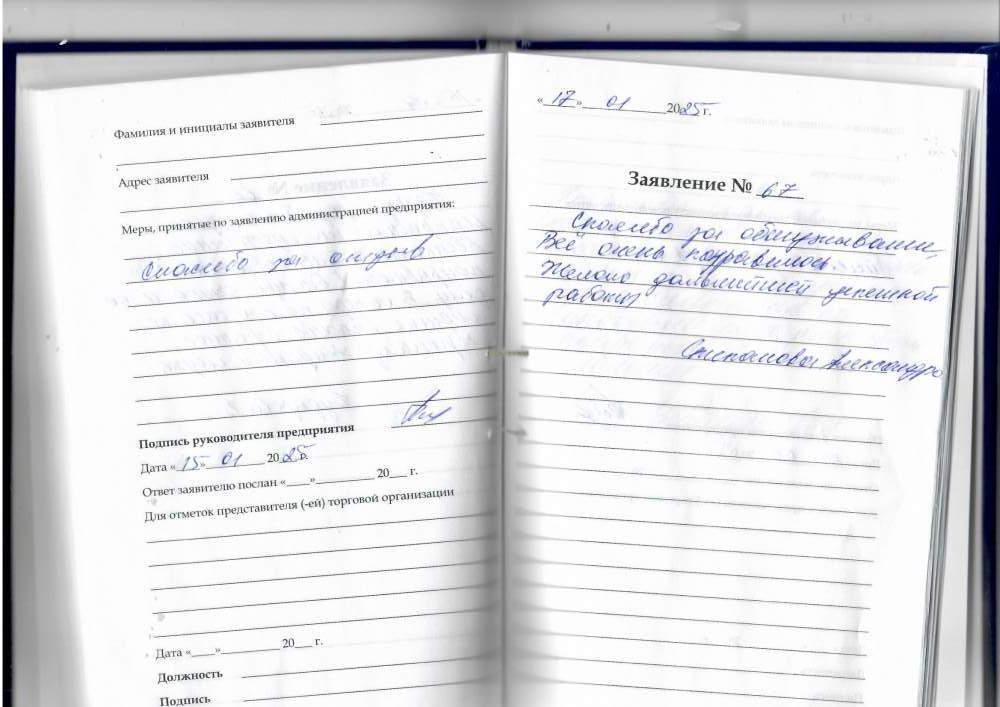 Фамилия и инициалы заявителя
Адрес заявителя
Меры, принятые по заявлению администрацией предприятия:
Спасибо за отзыв
Подпись руководителя предприятия
Дата «15» 01 2025 г.
Ответ заявителю послан «____»__________ 20___ г.
Для отметок представителя (-ей) торговой организации
Дата «____»__________ 20___ г.
Должность
Подпись
«17» 01 2025 г.
Заявление № 67
Спасибо за обслуживание,
Всё очень понравилось.
Желаю дальнейшей успешной
работы
Александра